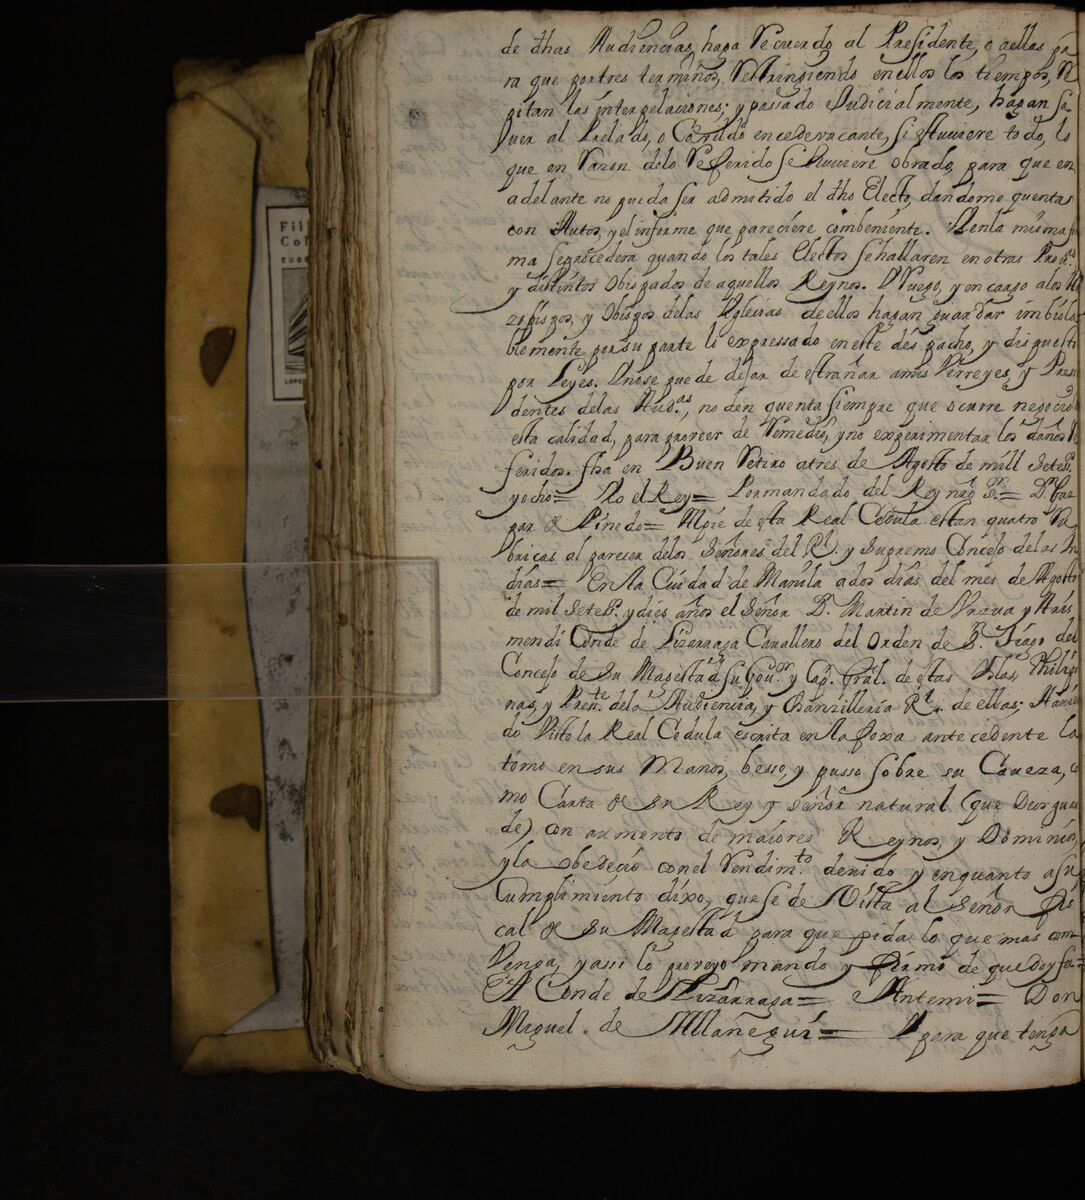 de dhas Audiencias, haga Recuerdo al Presidente, o aellas pa
ra que portres terminos, Restringiendo enellos los tiempos, Re
pitan las interpelaciones; y passado Judicialmente, hagan sa
ver al Prelado, o Cavildo en cedevacante, si estuviere todo, lo
que en Razon delo Referido se huviere obrado, para que en
adelante no pueda ser admitido el dho Electo, dandome quenta
con Autos, y el informe que pareciere combeniente. Yenla misma for
ma se procedera quando los tales Electos se hallaren en otras Prov.as
y distintos Obispados de aquellos Reynos. Y Ruego, y encargo alos Ar
zobispos, y Obispos delas Yglesias deellos hagan guardar imbiola
blemente por su parte lo expressado en este despacho, y dispuesto
por Leyes. Y nose puede dejar de estrañar amis Virreyes, y Presi
dentes delas Aud.as, no den quenta siempre que ocurre negocio
esta calidad, para proveer de Remedio, y no experimentar los daños Re
feridos. fha en Buen Retiro atres de Agosto de mill Setes.
yocho= Yo el Rey= Pormandado del Rey nro S.r= D.n Gas
par de Pinedo= Alpie de esta Real Cedula estan quatro Ru
bricas al parecer delos Señores del R.l y Supremo Consejo delas In
dias= En la Ciudad de Manila ados dias del mes de Agosto
de mil Setes. y dies años el Señor D. Martin de Vrsua y Aris
mendi Conde de Lizarraga Cavallero del Orden de S.n Tiago del
Concejo de Su Magestad su Gov.or y Cap. Gral. de estas Yslas Philipi
nas, y Pres.te dela Audiencia, y Chanzilleria R.l de ellas; Havien
do Visto la Real Cedula escrita en la foxa antecedente la
tomo en sus Manos, besso, y pusso sobre su Caveza, co
mo Carta de su Rey y Señor natural (que Dios guar
de) con aumento de maiores Reynos, y Dominios,
y la obedeció conel Rendim.to devido y enquanto asu
Cumplimiento dixo, que se de Vista al Señor Fis
cal de su Magestad para que pida lo que mas com
benga, y assi lo proveyo mando y firmó de que doy fee=
El Conde de Lizarraga= Antemi= Don
Miguel de Allanegui= Y para que tenga